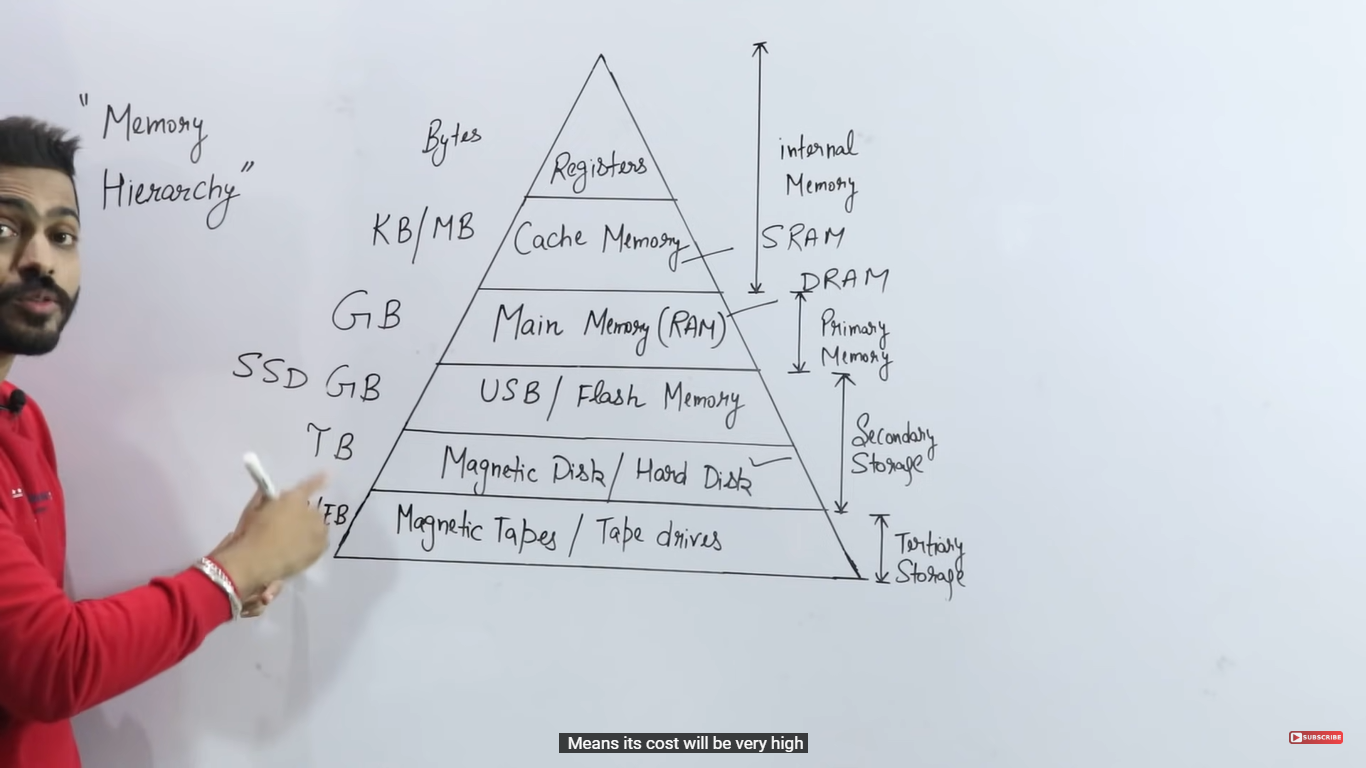 "Memory
Hierarchy"
Bytes
Registers
internal
Memory
KB/MB
Cache Memory
SRAM
DRAM
GB
Main Memory (RAM)
Primary
Memory
SSD GB
USB / Flash Memory
TB
Magnetic Disk / Hard Disk
Secondary
Storage
Magnetic Tapes / Tape drives
Tertiary
Storage
Means its cost will be very high
SUBSCRIBE